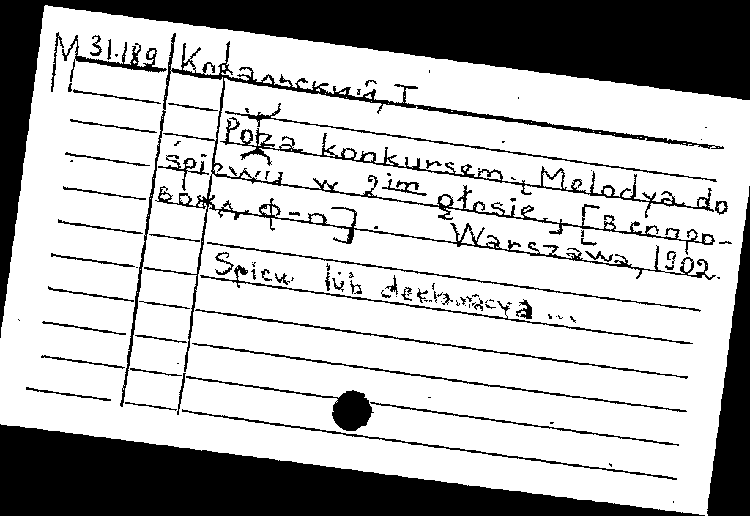 М 31.189 Ковальский, Т.
Poza konkursem. Melodya do
śpiewu w 2im głosie. [В сопро-
вожд. ф-п]. Warszawa, 1902.
Spiew lub deklamacya ...